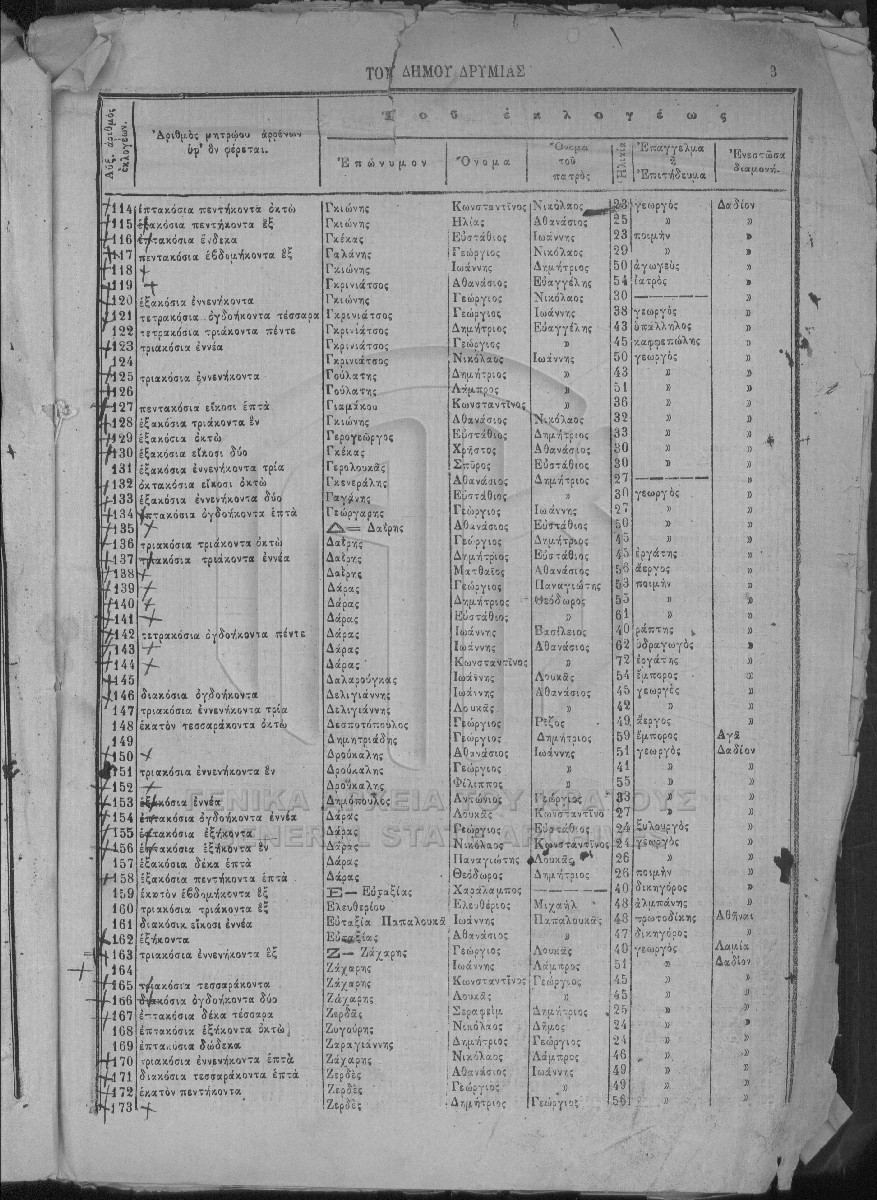 ΤΟΥ ΔΗΜΟΥ ΔΡΥΜΙΑΣ 3
Αὔξ. ἀριθμὸς ἐκλογέων.
Ἀριθμὸς μητρῴου ἀρρένων ὑφ' ὃν φέρεται.
Τοῦ ἐκλογέως
Ἐπώνυμον Ὄνομα Ὄνομα τοῦ πατρὸς Ἡλικία Ἐπάγγελμα ἢ Ἐπιτήδευμα Ἐνεστῶσα διαμονή.
114 ἑπτακόσια πεντήκοντα ὀκτὼ Γκιώνης Κωνσταντῖνος Νικόλαος 23 γεωργὸς Δαδίον
115 ἑξακόσια πεντήκοντα ἓξ Γκιώνης Ἠλίας Ἀθανάσιος 25 » »
116 ἑπτακόσια ἕνδεκα Γκέκας Εὐστάθιος Ἰωάννης 23 ποιμὴν »
117 πεντακόσια ἑβδομήκοντα ἓξ Γαλάνης Γεώργιος Νικόλαος 29 » »
118 Γκιώνης Ἰωάννης Δημήτριος 50 ἀγωγεὺς »
119 Γκρινιάτσος Ἀθανάσιος Εὐαγγέλης 54 ἰατρὸς »
120 ἑξακόσια ἐννενήκοντα Γκιώνης Γεώργιος Νικόλαος 30 — »
121 τετρακόσια ὀγδοήκοντα τέσσαρα Γκρινιάτσος Γεώργιος Ἰωάννης 38 γεωργὸς »
122 τετρακόσια τριάκοντα πέντε Γκρινιάτσος Δημήτριος Εὐαγγέλης 43 ὑπάλληλος »
123 τριακόσια ἐννέα Γκρινιάτσος Γεώργιος » 45 καφφεπώλης »
124 Γκρινιάτσος Νικόλαος Ἰωάννης 50 γεωργὸς »
125 τριακόσια ἐννενήκοντα Γούλατης Δημήτριος » 43 » »
126 Γούλατης Λάμπρος » 51 » »
127 πεντακόσια εἴκοσι ἑπτὰ Γιαμάκου Κωνσταντῖνος » 36 » »
128 ἑξακόσια τριάκοντα ἓν Γκιώνης Ἀθανάσιος Νικόλαος 32 » »
129 ἑξακόσια ὀκτὼ Γερογεῶργος Εὐστάθιος Δημήτριος 33 » »
130 ἑξακόσια εἴκοσι δύο Γκέκας Χρῆστος Ἀθανάσιος 30 » »
131 ἑξακόσια ἐννενήκοντα τρία Γερολουκᾶς Σπῦρος Εὐστάθιος 30 » »
132 ὀκτακόσια εἴκοσι ὀκτὼ Γκενεράλης Ἀθανάσιος Δημήτριος 27 — »
133 ἑξακόσια ἐννενήκοντα δύο Γαγάνης Εὐστάθιος » 30 γεωργὸς »
134 ἑπτακόσια ὀγδοήκοντα ἑπτὰ Γεώργαρης Γεώργιος Ἰωάννης 27 » »
135 Δ= Δαΐρης Ἀθανάσιος Εὐστάθιος 50 » »
136 τριακόσια τριάκοντα ὀκτὼ Δαΐρης Γεώργιος Δημήτριος 45 » »
137 τριακόσια τριάκοντα ἐννέα Δαΐρης Δημήτριος Εὐστάθιος 45 ἐργάτης »
138 Δαΐρης Ματθαῖος Ἀθανάσιος 56 ἄεργος »
139 Δάρας Γεώργιος Παναγιώτης 53 ποιμὴν »
140 Δάρας Δημήτριος Θεόδωρος 55 » »
141 Δάρας Εὐστάθιος » 61 » »
142 τετρακόσια ὀγδοήκοντα πέντε Δάρας Ἰωάννης Βασίλειος 40 ράπτης »
143 Δάρας Ἰωάννης Ἀθανάσιος 62 ὑδραγωγὸς »
144 Δάρας Κωνσταντῖνος » 72 ἐργάτης »
145 Δαλαρούγκας Ἰωάννης Λουκᾶς 54 ἔμπορος »
146 διακόσια ὀγδοήκοντα Δελιγιάννης Ἰωάννης Ἀθανάσιος 45 γεωργὸς »
147 τριακόσια ἐννενήκοντα τρία Δελιγιάννης Λουκᾶς » 42 » »
148 ἑκατὸν τεσσαράκοντα ὀκτὼ Δεσποτόπουλος Γεώργιος Ρίζος 49 ἄεργος »
149 Δημητριάδης Γεώργιος Δημήτριος 59 ἔμπορος Ἀγᾶ
150 Δρούκαλης Ἀθανάσιος Ἰωάννης 51 γεωργὸς Δαδίον
151 τριακόσια ἐννενήκοντα ἓν Δρούκαλης Γεώργιος » 41 » »
152 Δρούκαλης Φίλιππος » 55 » »
153 ἑξακόσια ἐννέα Δημόπουλος Ἀντώνιος Γεώργιος 33 » »
154 ἑπτακόσια ὀγδοήκοντα ἐννέα Δάρας Λουκᾶς Κωνσταντῖνο 27 » »
155 ἑπτακόσια ἑξήκοντα Δάρας Γεώργιος Εὐστάθιος 24 ξυλουργὸς »
156 ἑπτακόσια ἑξήκοντα ἓν Δάρας Νικόλαος Κωνσταντῖνος 24 γεωργὸς »
157 ἑξακόσια δέκα ἑπτὰ Δάρας Παναγιώτης Λουκᾶς 26 » »
158 ἑξακόσια πεντήκοντα ἑπτὰ Δάρας Θεόδωρος Δημήτριος 26 ποιμὴν »
159 ἑκατὸν ἑβδομήκοντα ἓξ Ε— Εὐταξίας Χαράλαμπος — 40 δικηγόρος »
160 τριακόσια τριάκοντα ἓξ Ἐλευθερίου Ἐλευθέριος Μιχαὴλ 48 ἀλμπάνης »
161 διακόσια εἴκοσι ἐννέα Εὐταξία Παπαλουκᾶ Ἰωάννης Παπαλουκᾶς 48 πρωτοδίκης Ἀθῆναι
162 ἑξήκοντα Εὐταξίας Ἀθανάσιος » 47 δικηγόρος »
163 τριακόσια ἐννενήκοντα ἓξ Ζ— Ζάχαρης Γεώργιος Λουκᾶς 40 γεωργὸς Λαμία
164 Ζάχαρης Ἰωάννης Λάμπρος 51 » Δαδίον
165 τριακόσια τεσσαράκοντα Ζάχαρης Κωνσταντῖνος Γεώργιος 45 » »
166 διακόσια ὀγδοήκοντα δύο Ζάχαρης Λουκᾶς » 45 » »
167 ἑπτακόσια δέκα τέσσαρα Ζερδᾶς Σεραφεὶμ Δημήτριος 25 » »
168 ἑπτακόσια ἑξήκοντα ὀκτὼ Ζυγούρης Νικόλαος Δῆμος 24 » »
169 ἑπτακόσια δώδεκα Ζαραγιάννης Δημήτριος Γεώργιος 24 » »
170 τριακόσια ἐννενήκοντα ἑπτὰ Ζάχαρης Νικόλαος Λάμπρος 46 » »
171 διακόσια τεσσαράκοντα ἑπτὰ Ζερδὲς Ἀθανάσιος Ἰωάννης 49 » »
172 ἑκατὸν πεντήκοντα Ζερδὲς Γεώργιος » 49 » »
173 Ζερδὲς Δημήτριος Γεώργιος 56 » »
ΓΕΝΙΚΑ ΑΡΧΕΙΑ ΤΟΥ ΚΡΑΤΟΥΣ
GENERAL STATE ARCHIVES